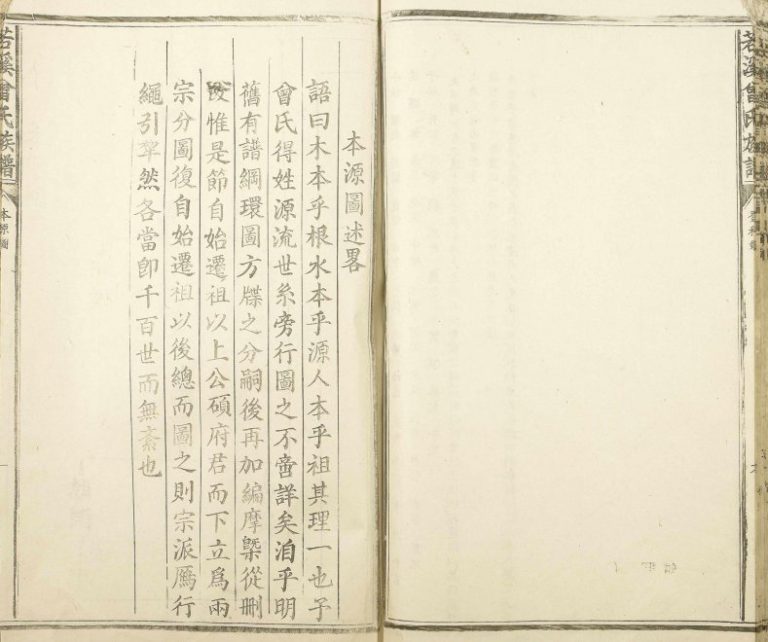 本源圖述畧
語曰木本乎根水本乎源人本乎祖其理一也予
曾氏得姓源流世系旁行圖之不啻詳矣洎乎明
舊有譜綱環圖方牒之分嗣後再加編摩槩從刪
惟是節自始遷祖以上公碩府君而下立爲兩
宗分圖復自始遷祖以後總而圖之則宗派鴈行
繩引犂然各當卽千百世而無紊也
溪曾氏族譜
本源圖